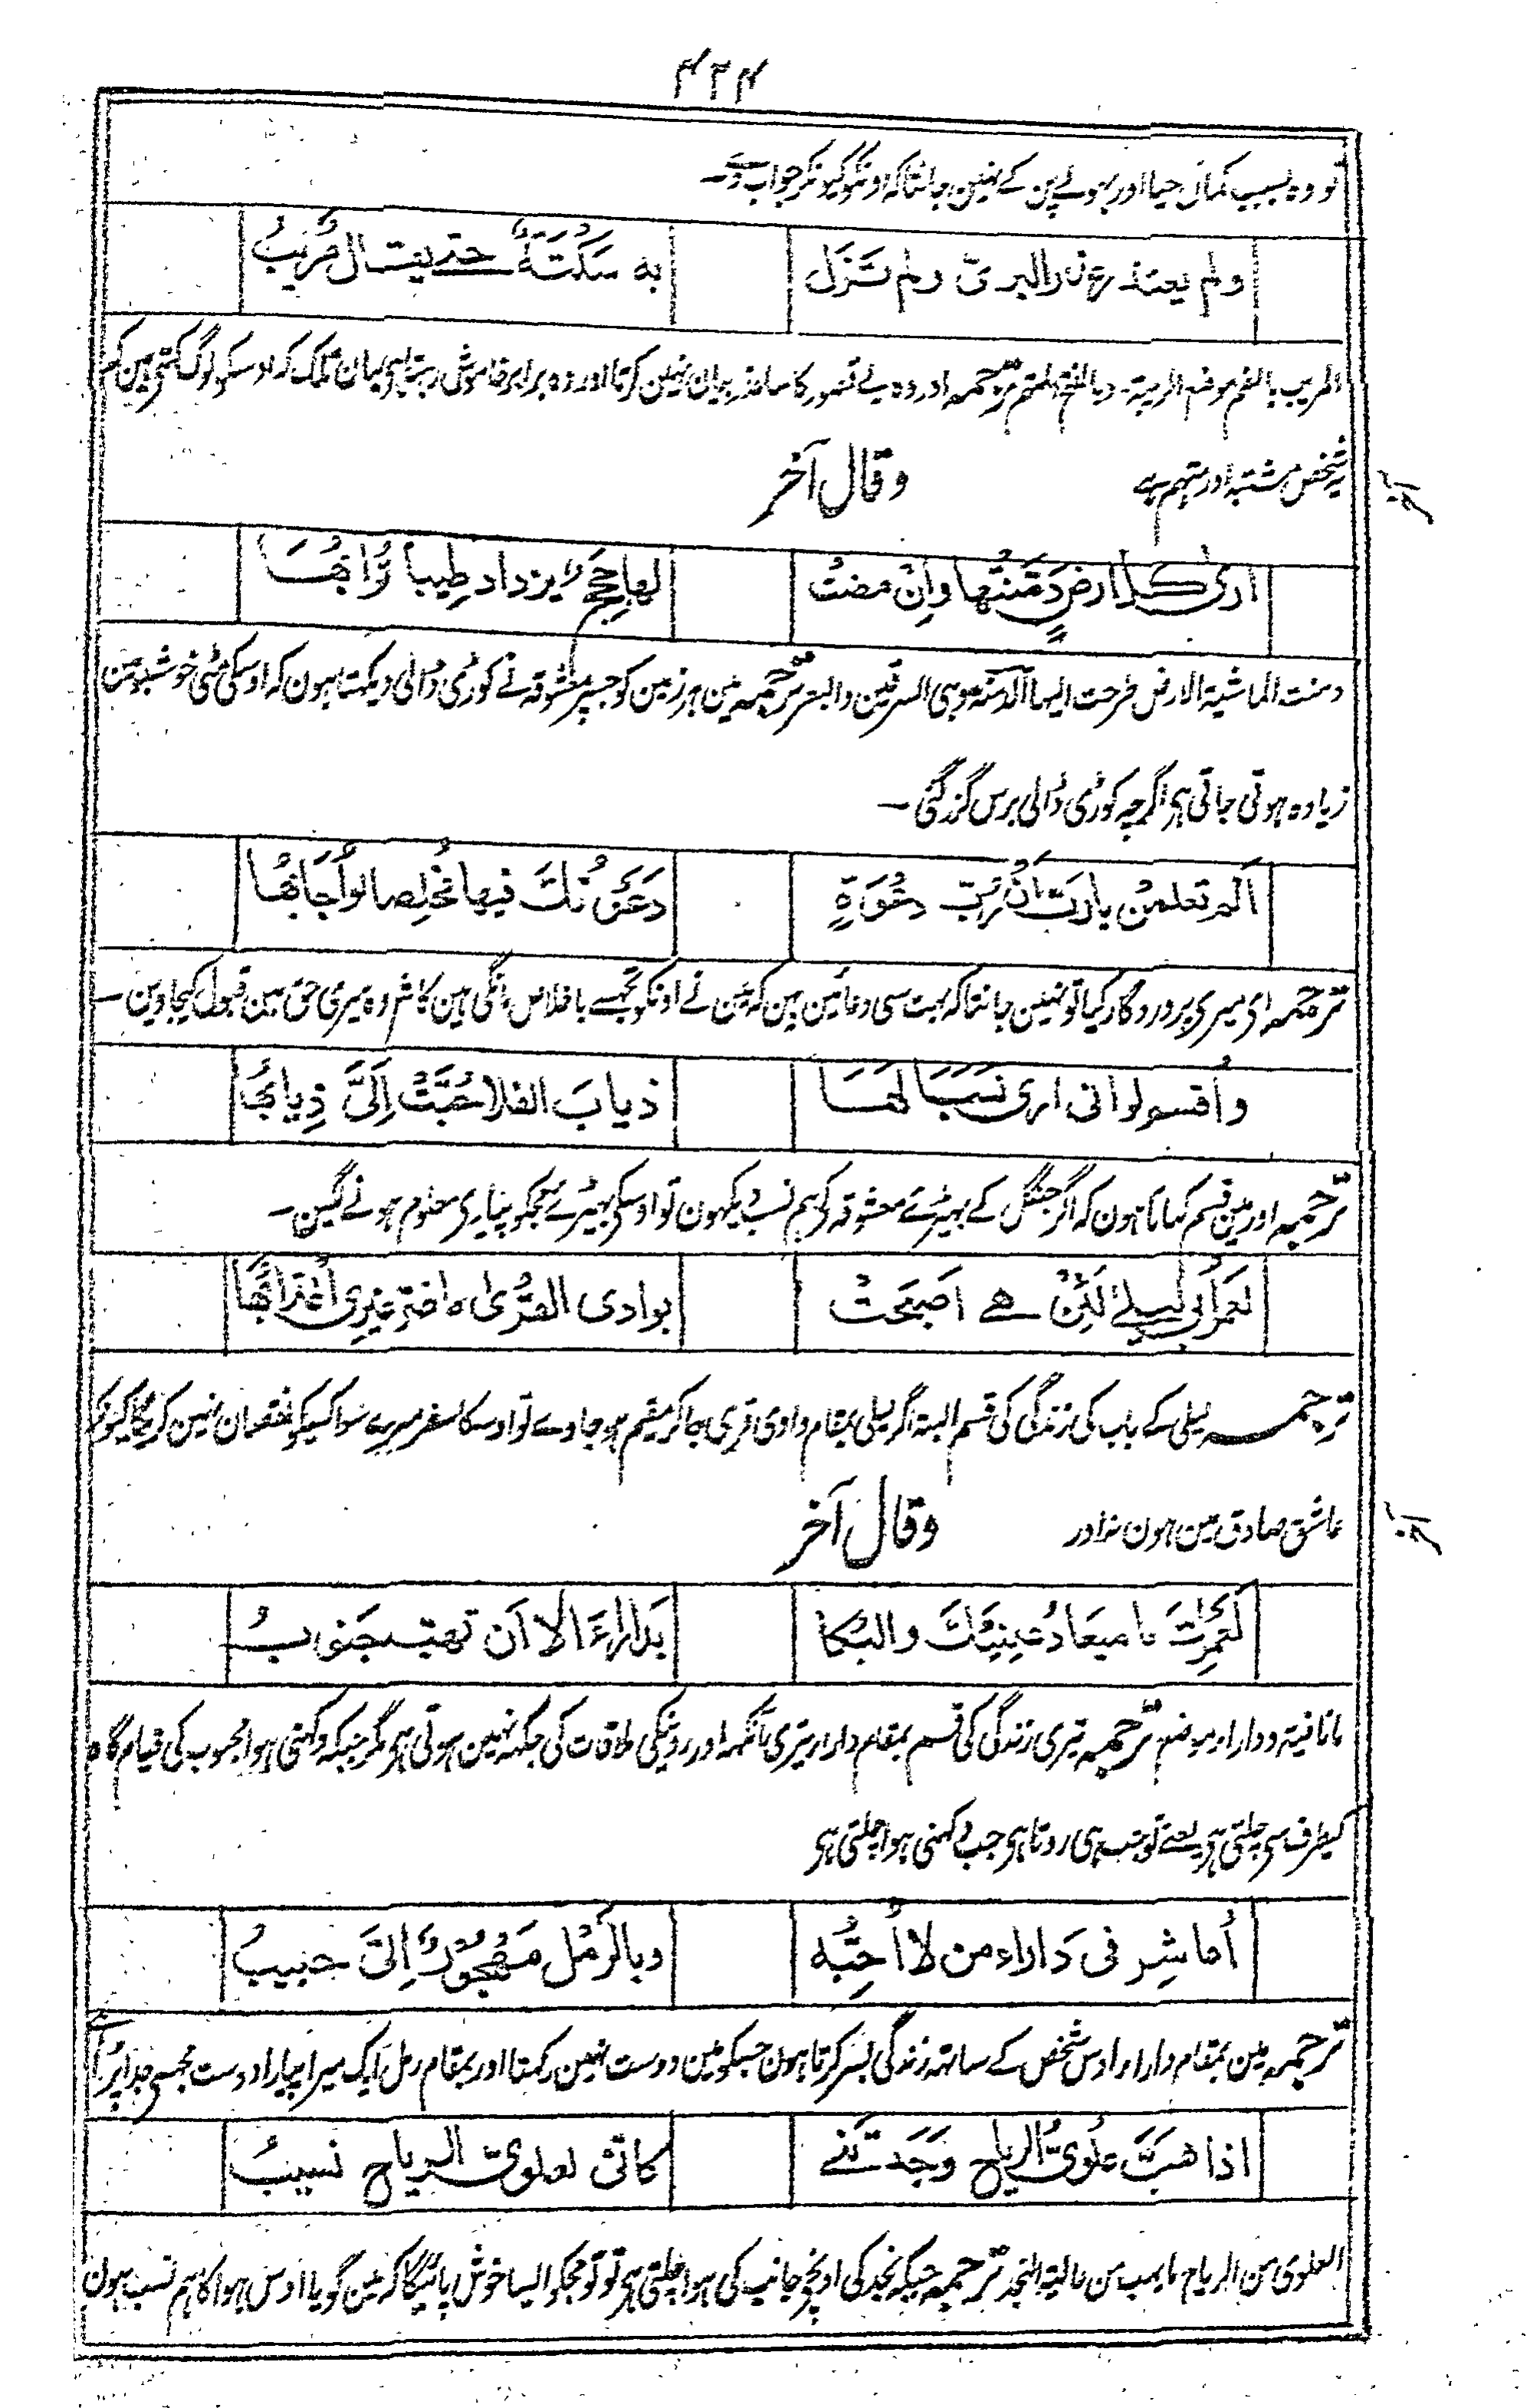 ۴۲۴
تو وہ بسبب کمال حیا اور بہولے پن کے نہین جانتا کہ اونکو کیونکر جواب دے۔
ولم یعتذر عذر البریّ ولم تَزَل به سَکتَةٌ حتی یقال مُرِیبُ
المریب بالضم موضع الریبة۔ وبالفتح المتہم ترجمہ اور وہ بے قصور کا سا عذر بیان نہین کرتا اور وہ برابر خاموش رہتا ہی یہان تلک کہ اوسکو لوگ کہتے ہین کہ
یہ شخص مشتبہ اور متہم ہے وقال آخر
اری کلَّ ارضٍ دَمَّنَتْها وإنْ مضتْ لها حِجَجٌ یزداد طِیباً تُرابُهَا
دمنت الماشیة الارض طرحت الیہا الدمنة وہی السرقین والبعر ترجمہ مین ہر زمین کو جسپر معشوقہ نے کوڑی ڈالی دیکھتا ہون کہ اوسکی مٹی خوشبو مین
زیادہ ہوتی جاتی ہی اگرچہ کوڑی ڈالی برس گزر گئی ۔
اَلم تعلمنْ یا رَبِّ اَنْ رُبَّ دعْوَةٍ دَعَوْتُكَ فیها مُخْلِصا لو أُجَابُها
ترجمہ ای میری پروردگار کیا تو نہین جانتا کہ بہت سی دعائین ہین کہ مین نے اونکو تجہسے باخلاص مانگی ہین کاش وہ میری حق مین قبول کیجاوین ۔
وأُقسم لو انی اری نَسَبًا لَهَا ذیابَ الفلا حُبَّتْ اِلَیَّ ذِیابُها
ترجمہ اور مین قسم کہاتا ہون کہ اگر جنگل کے بہیڑئے معشوقہ کی ہم نسب دیکہون تو اوسکی بہیڑئے مجکو پیاری معلوم ہونے لگین ۔
لعَمْرُ أبی لیلیٰ لَئِنْ هے اَصبحَتْ بوادی القُریٰ ما ضَرَّ غیری اغْتِرَابُها
ترجمہ لیلی کے باپ کی زندگی کی قسم البتہ اگر لیلی بمقام وادی قری جا کر مقیم ہو جاوے تو اوسکا سفر میرے سوا کسیکو نقصان نہین کریگا کیونکہ
عاشق صادق مین ہون نہ اور وقال آخر
لَعَمْرُكَ ما میعَادُ عینَیْكَ والبُکا بَدَاراءَ الا اَن تهبَّ جَنوبُ
ما نافیة و داراء موضع ترجمہ تیری زندگی کی قسم بمقام داراء تیری آنکہہ اور رونیکی ملاقات کی جگہہ نہین ہوتی ہی مگر جبکہ دکھنی ہوا محبوب کی قیام گاہ
کیطرف سی چلتی ہی یعنے تو جب ہی روتا ہی جب دکہنی ہوا چلتی ہی
أُعاشِر فی دَاراء من لا اُحِبُّه وبالرَّمْل مَهْجُورٌ اِلیَّ حبیبُ
ترجمہ مین بمقام داراء اوس شخص کے ساتہہ زندگی بسر کرتا ہون جسکو مین دوست نہین رکہتا اور بمقام رمل ایک میرا پیارا دوست مجہسے جدا پڑا ہے
اذا هَبَّ عُلویُّ الریاح وَجَدتَنے کانّی لعلویّ الریاح نسیبُ
العلوی من الریاح ما یہب من عالیة النجد ترجمہ جبکہ نجد کی اونچی جانب کی ہوا چلتی ہی تو تو مجکو ایسا خوش پائیگا کہ مین گویا اوس ہوا کا ہم نسب ہون